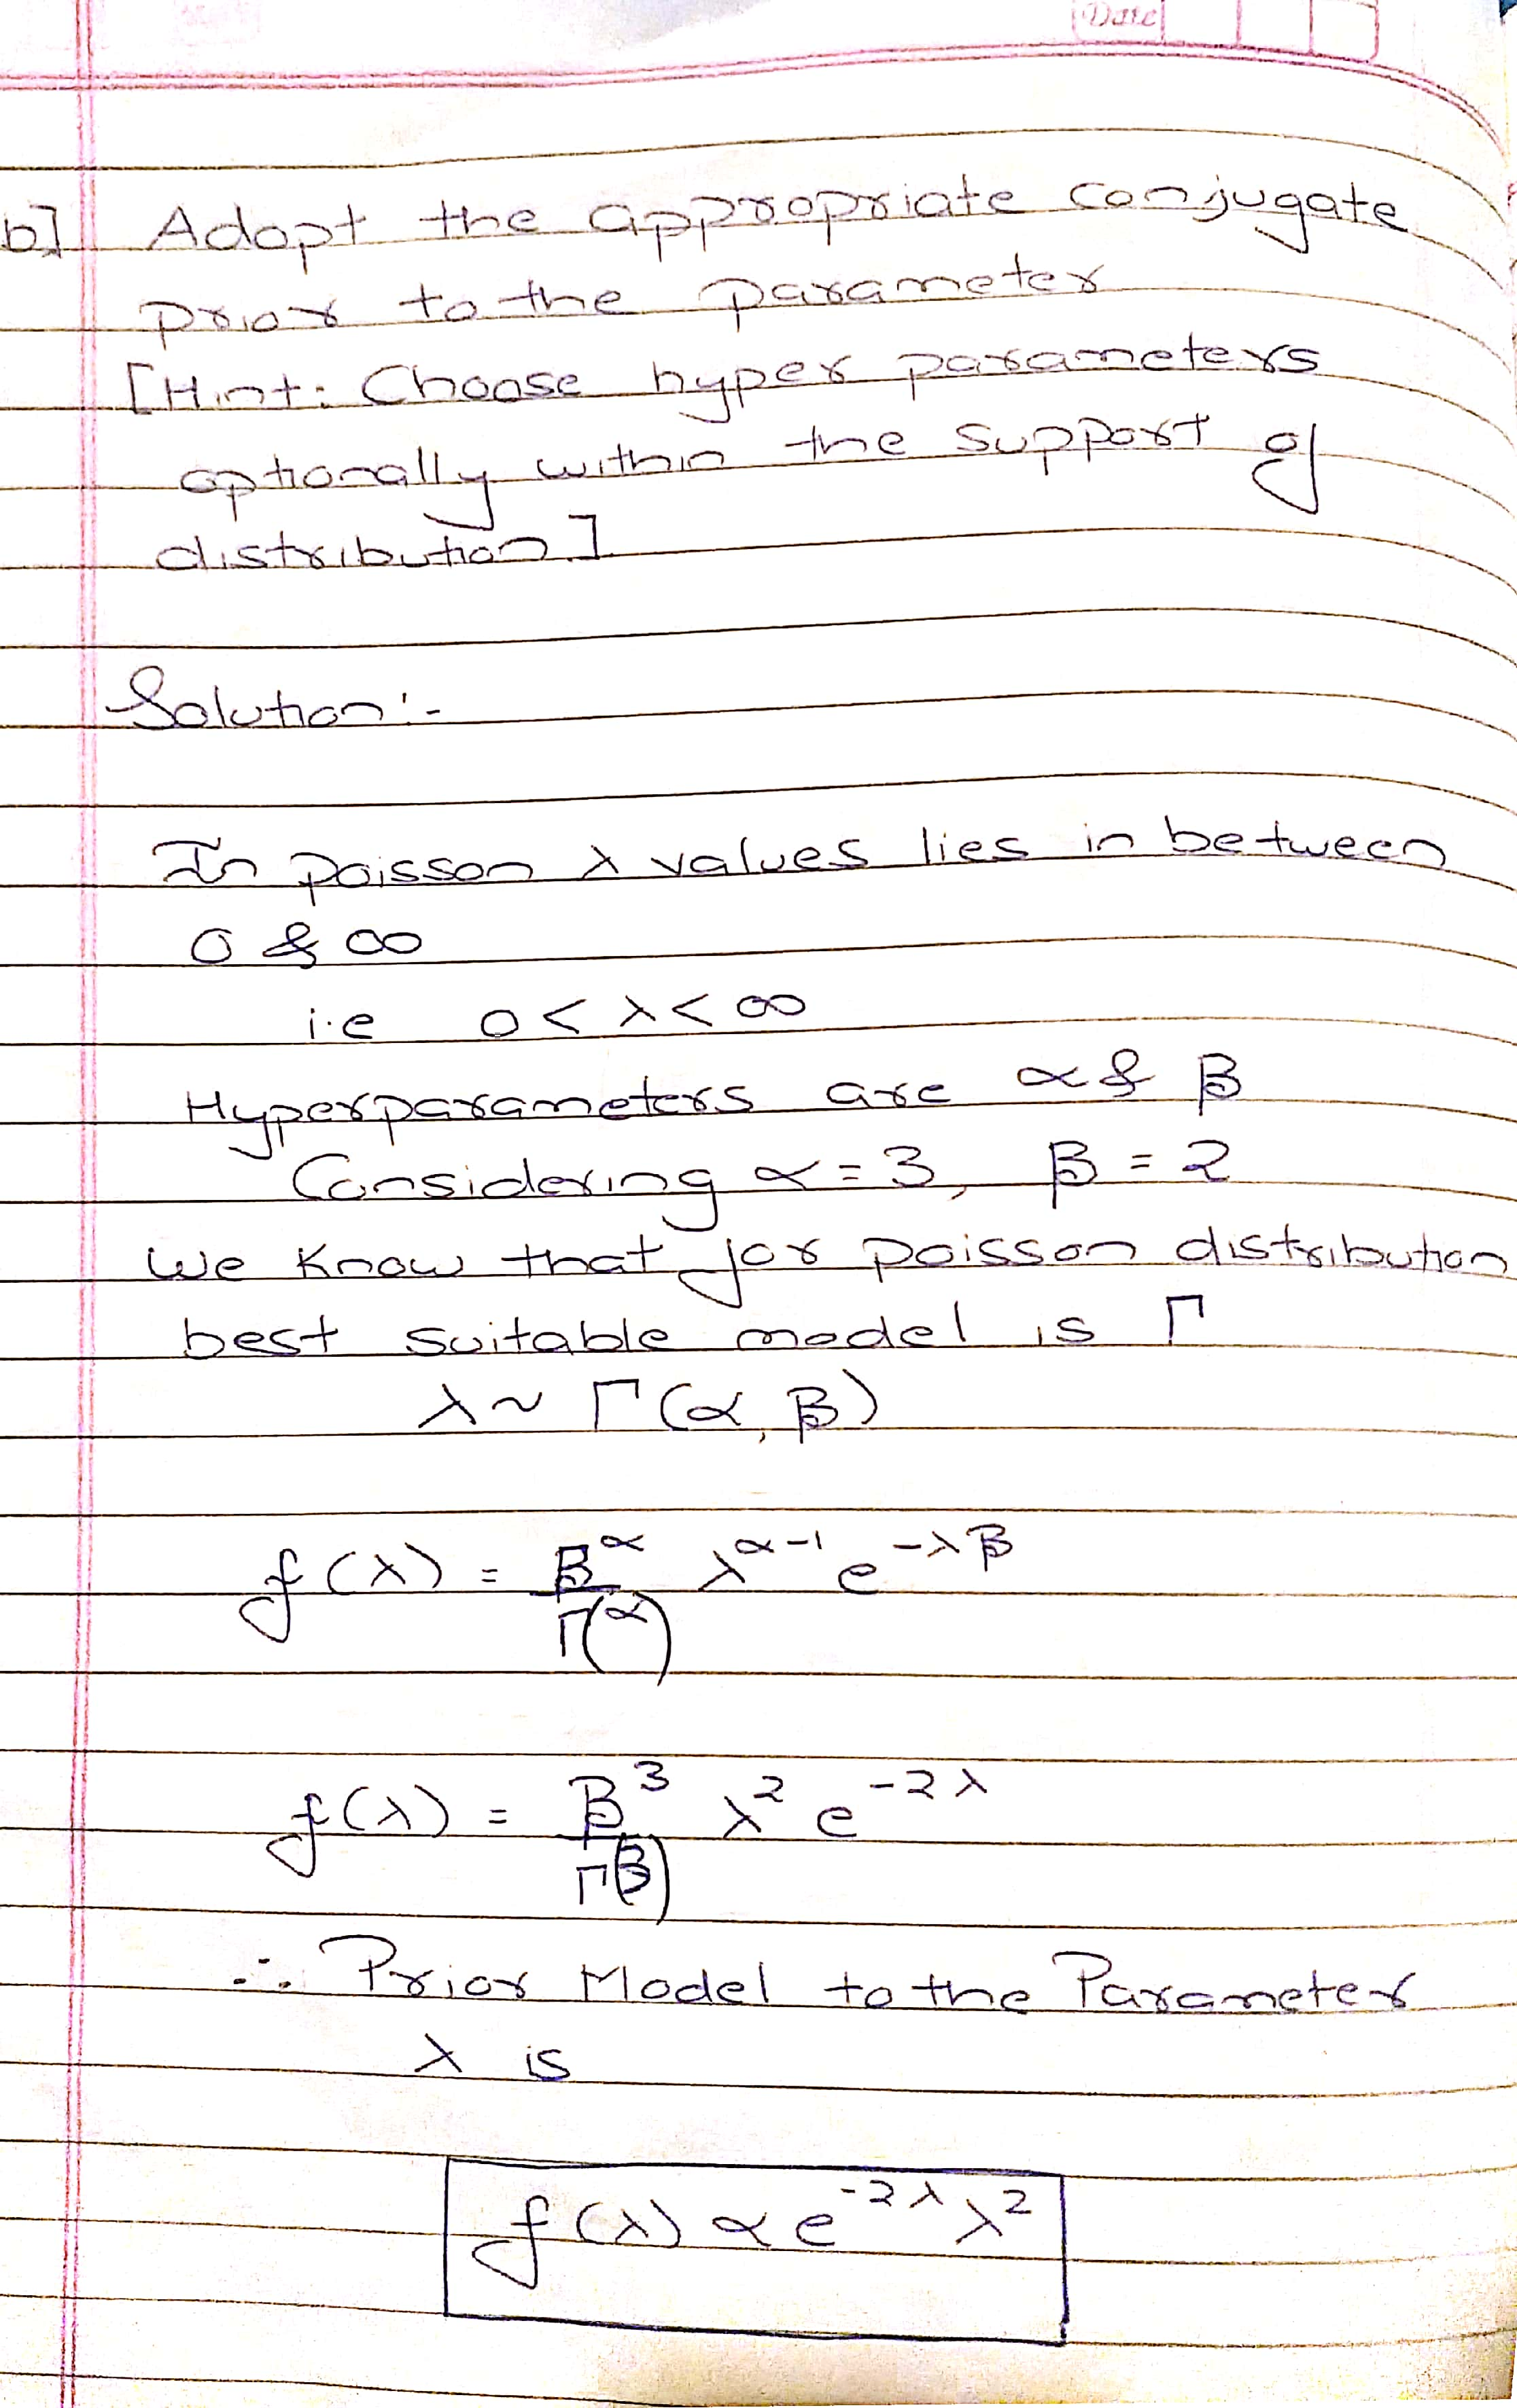 Date
b] Adopt the appropriate conjugate
prior to the parameter
[Hint: Choose hyper parameters
optionally within the support of
distribution]
Solution:-
In poisson λ values lies in between
0 & ∞
i.e 0 < λ < ∞
Hyperparameters are α & β
Considering α = 3, β = 2
we know that for poisson distribution
best suitable model is Γ
λ ~ Γ(α, β)
f(λ) = β^α / Γ(α) λ^(α-1) e^(-λβ)
f(λ) = β^3 / Γ(β) λ^2 e^(-2λ)
∴ Prior Model to the Parameter
λ is
f(λ) α e^(-2λ) λ^2